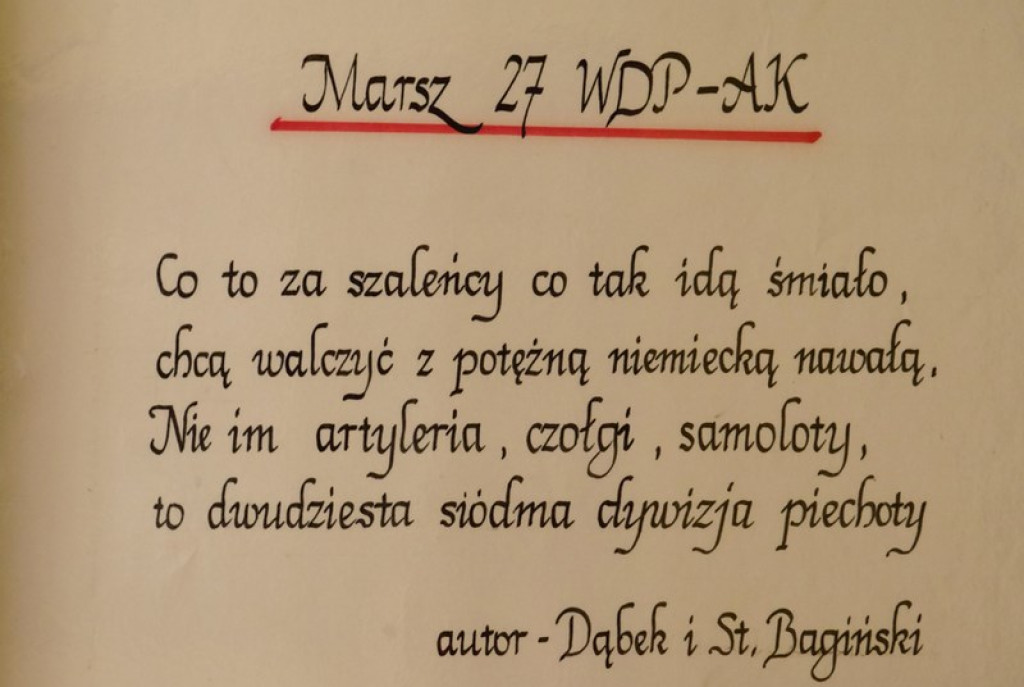 Marsz 27 WDP-AK
Co to za szaleńcy co tak idą śmiało,
chcą walczyć z potężną niemiecką nawałą.
Nie im artyleria, czołgi, samoloty,
to dwudziesta siódma dywizja piechoty
autor - Dąbek i St. Bagiński